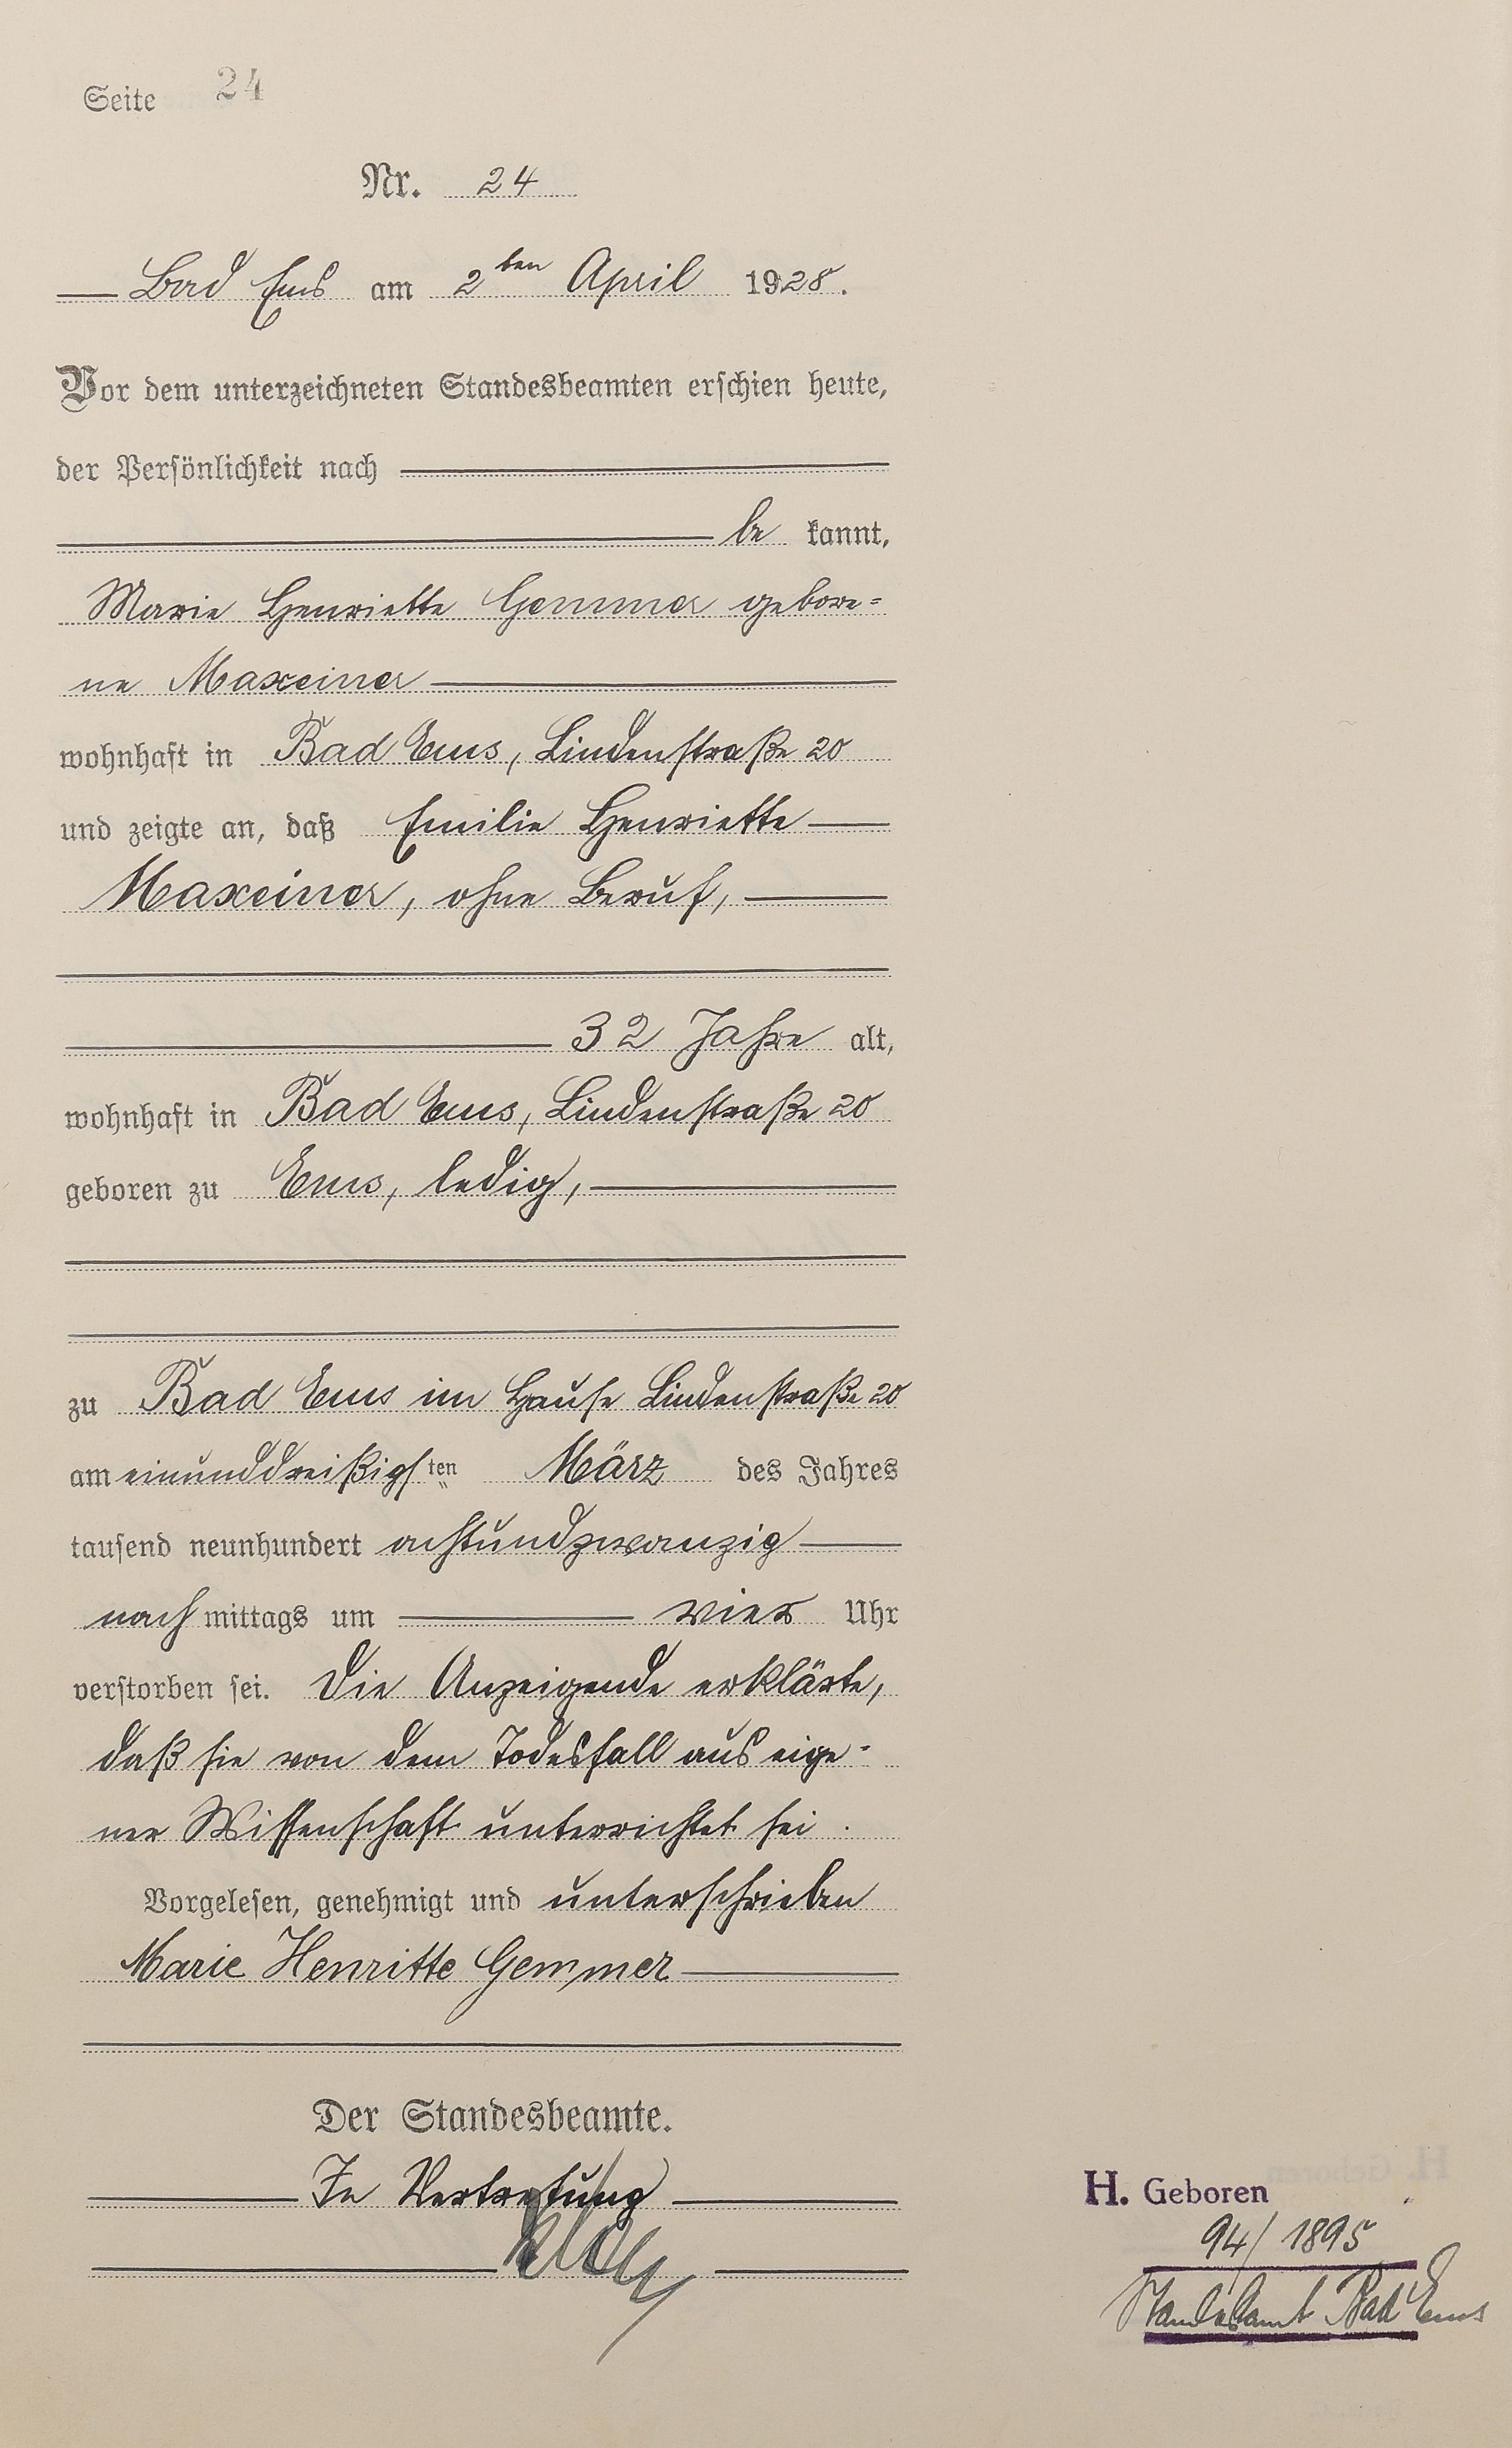 Seite 24
Nr. 24
Bad Ems am 2ten April 1928.
Vor dem unterzeichneten Standesbeamten erschien heute,
der Persönlichkeit nach
be kannt,
Marie Henriette Gemmer gebore=
ne Maxeiner
wohnhaft in Bad Ems, Lindenstraße 20
und zeigte an, daß Emilie Henriette
Maxeiner, ohne Beruf,
32 Jahre alt,
wohnhaft in Bad Ems, Lindenstraße 20
geboren zu Ems, ledig,
zu Bad Ems im Hause Lindenstraße 20
am einunddreißigsten März des Jahres
tausend neunhundert achtundzwanzig
nachmittags um vier Uhr
verstorben sei. Die Anzeigende erklärte,
daß sie von dem Todesfall aus eige=
ner Wissenschaft unterrichtet sei.
Vorgelesen, genehmigt und unterschrieben
Marie Henritte Gemmer
Der Standesbeamte.
In Vertretung
H. Geboren
94/1895
Standesamt Bad Ems